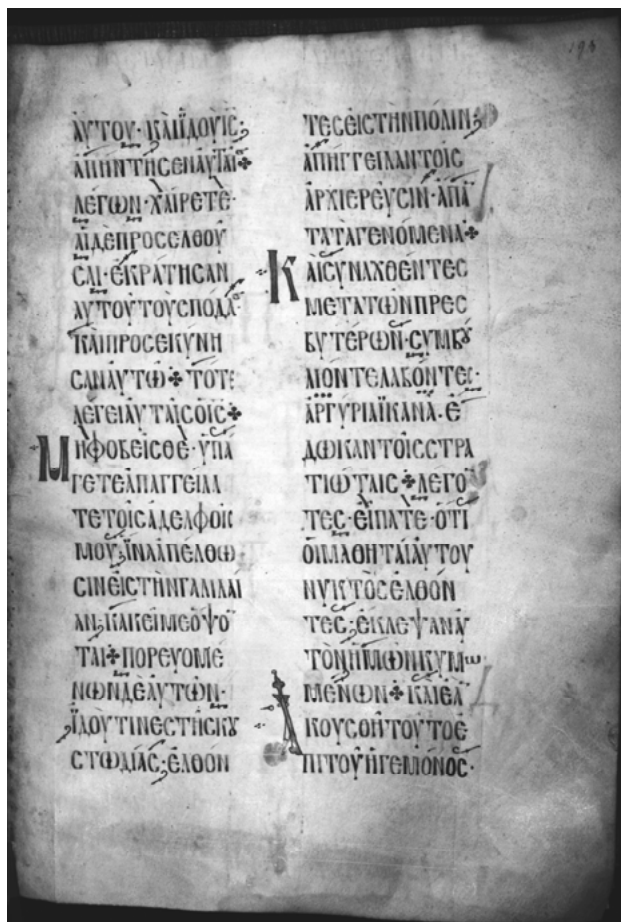 ΑΥΤΟΥ· ΚΑΙΪΔΟΥΙϹ·
ΑΠΗΝΤΗϹΕΝΑΥΤΑΙ⁘
ΛΕΓΩΝ·ΧΑΙΡΕΤΕ·
ΑΙΔΕΠΡΟϹΕΛΘΟΥ
ϹΑΙ·ΕΚΡΑΤΗϹΑΝ
ΑΥΤΟΥΤΟΥϹΠΟΔΑ·
ΚΑΙΠΡΟϹΕΚΥΝΗ
ϹΑΝΑΥΤΩ⁘ΤΟΤΕ
ΛΕΓΕΙΑΥΤΑΙϹΟΙϹ⁘
ΜΗΦΟΒΕΙϹΘΕ·ΥΠΑ
ΓΕΤΕΑΠΑΓΓΕΙΛΑ
ΤΕΤΟΙϹΑΔΕΛΦΟΙϹ
ΜΟΥ·ΪΝΑΑΠΕΛΘΩ
ϹΙΝΕΙϹΤΗΝΓΑΛΙΛΑΙ
ΑΝ·ΚΑΚΕΙΜΕΟΨΟ
ΤΑΙ⁘ΠΟΡΕΥΟΜΕ
ΝΩΝΔΕΑΥΤΩΝ·
ΪΔΟΥΤΙΝΕϹΤΗϹΚȢ
ϹΤΩΔΙΑϹ·ΕΛΘΟΝ
ΤΕϹΕΙϹΤΗΝΠΟΛΙΝ·
ΑΠΗΓΓΕΙΛΑΝΤΟΙϹ
ΑΡΧΙΕΡΕΥϹΙΝ·ΑΠΑ
ΤΑΤΑΓΕΝΟΜΕΝΑ⁘
ΚΑΙϹΥΝΑΧΘΕΝΤΕϹ
ΜΕΤΑΤΩΝΠΡΕϹ
ΒΥΤΕΡΩΝ·ϹΥΜΒȢ
ΛΙΟΝΤΕΛΑΒΟΝΤΕϹ·
ΑΡΓΥΡΙΑΪΚΑΝΑ·Ε
ΔΩΚΑΝΤΟΙϹϹΤΡΑ
ΤΙΩΤΑΙϹ⁘ΛΕΓΟ
ΤΕϹ·ΕΙΠΑΤΕ·ΟΤΙ
ΟΙΜΑΘΗΤΑΙΑΥΤΟΥ
ΝΥΚΤΟϹΕΛΘΟΝ
ΤΕϹ·ΕΚΛΕΨΑΝΑΥ
ΤΟΝΗΜΩΝΚΥΜΩ
ΜΕΝΩΝ⁘ΚΑΙΕΑ
ΑΚΟΥϹΘΗΤΟΥΤΟΕ
ΠΙΤΟΥΗΓΕΜΟΝΟϹ·